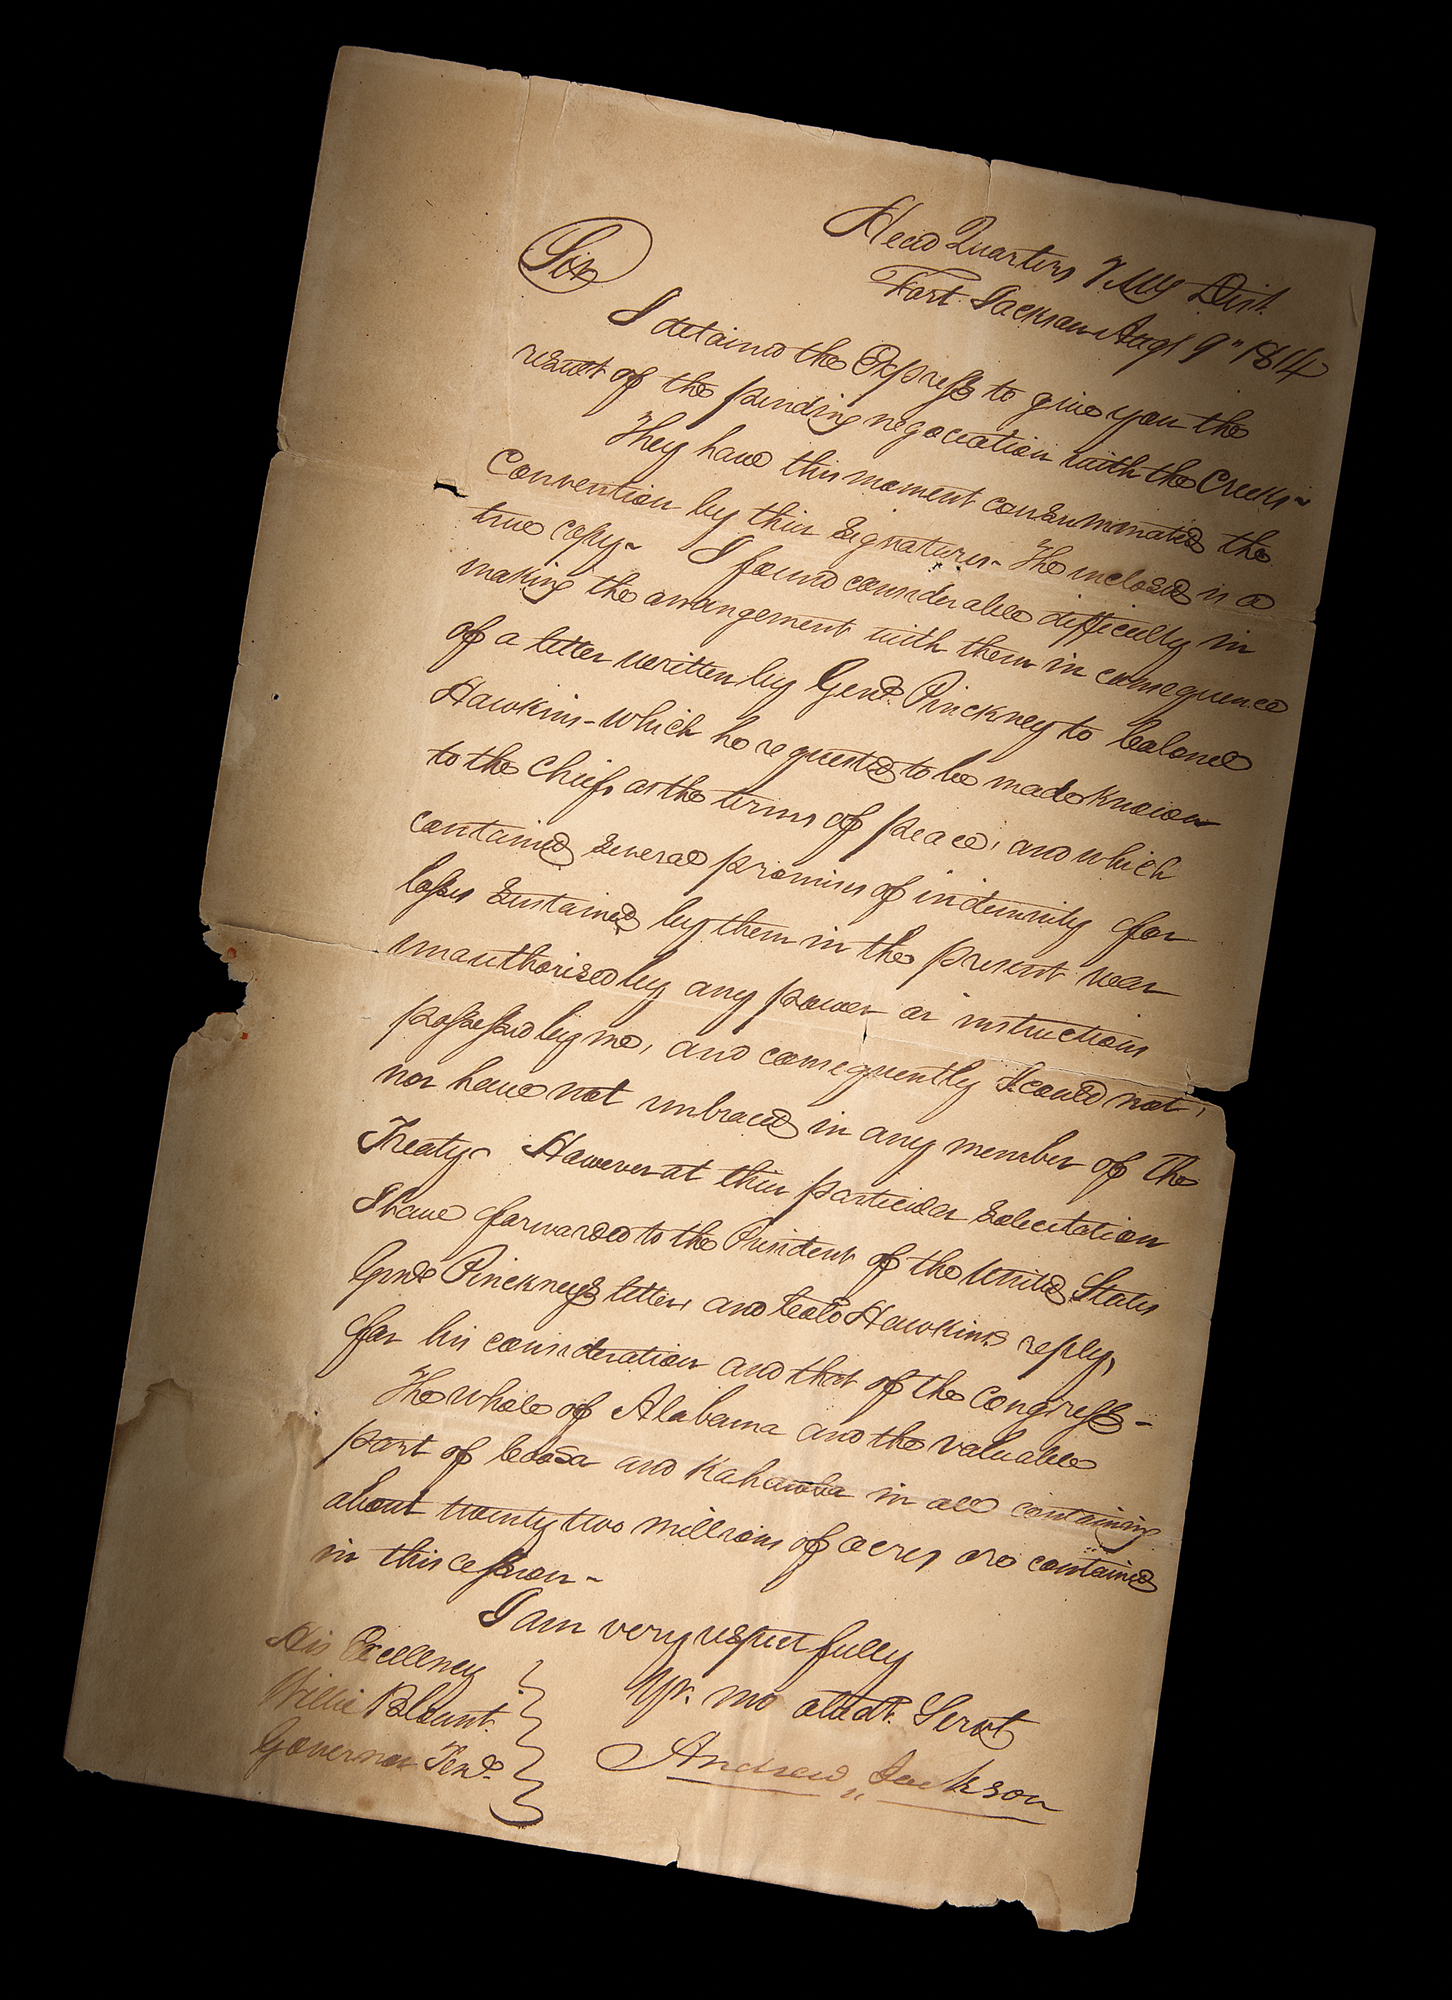 Head Quarters 7 My Dist.
Fort Jackson Augt 9" 1814
Sir
I detained the Express to give you the
result of the pending negociation with the Creeks~
They have this moment consummated the
Convention by their signatures- The inclosed is a
true copy~ I found considerable difficulty in
making the arrangement with them in consequence
of a letter written by Genl. Pinckney to Colonel
Hawkins-which he requested to be made known
to the chiefs as the terms of peace, and which
contained several promises of indemnity for
losses sustained by them in the present war
unauthorised by any power or instructions
possessed by me, and consequently I could not,
nor have not embraced in any member of the
Treaty~ However at their particular solicitation
I have forwarded to the President of the United States
Genl Pinckneys letter, and Colo Hawkins reply,
for his consideration and that of the Congress-
The whole of Alabama and the valuable
part of Coosa and Kahawba in all containing
about twenty two millions of acres are contained
in this cession~
I am very respectfully
Yr. mo obedt. Servt
Andrew Jackson
His Excellency
Willie Blount
Governor Tene.